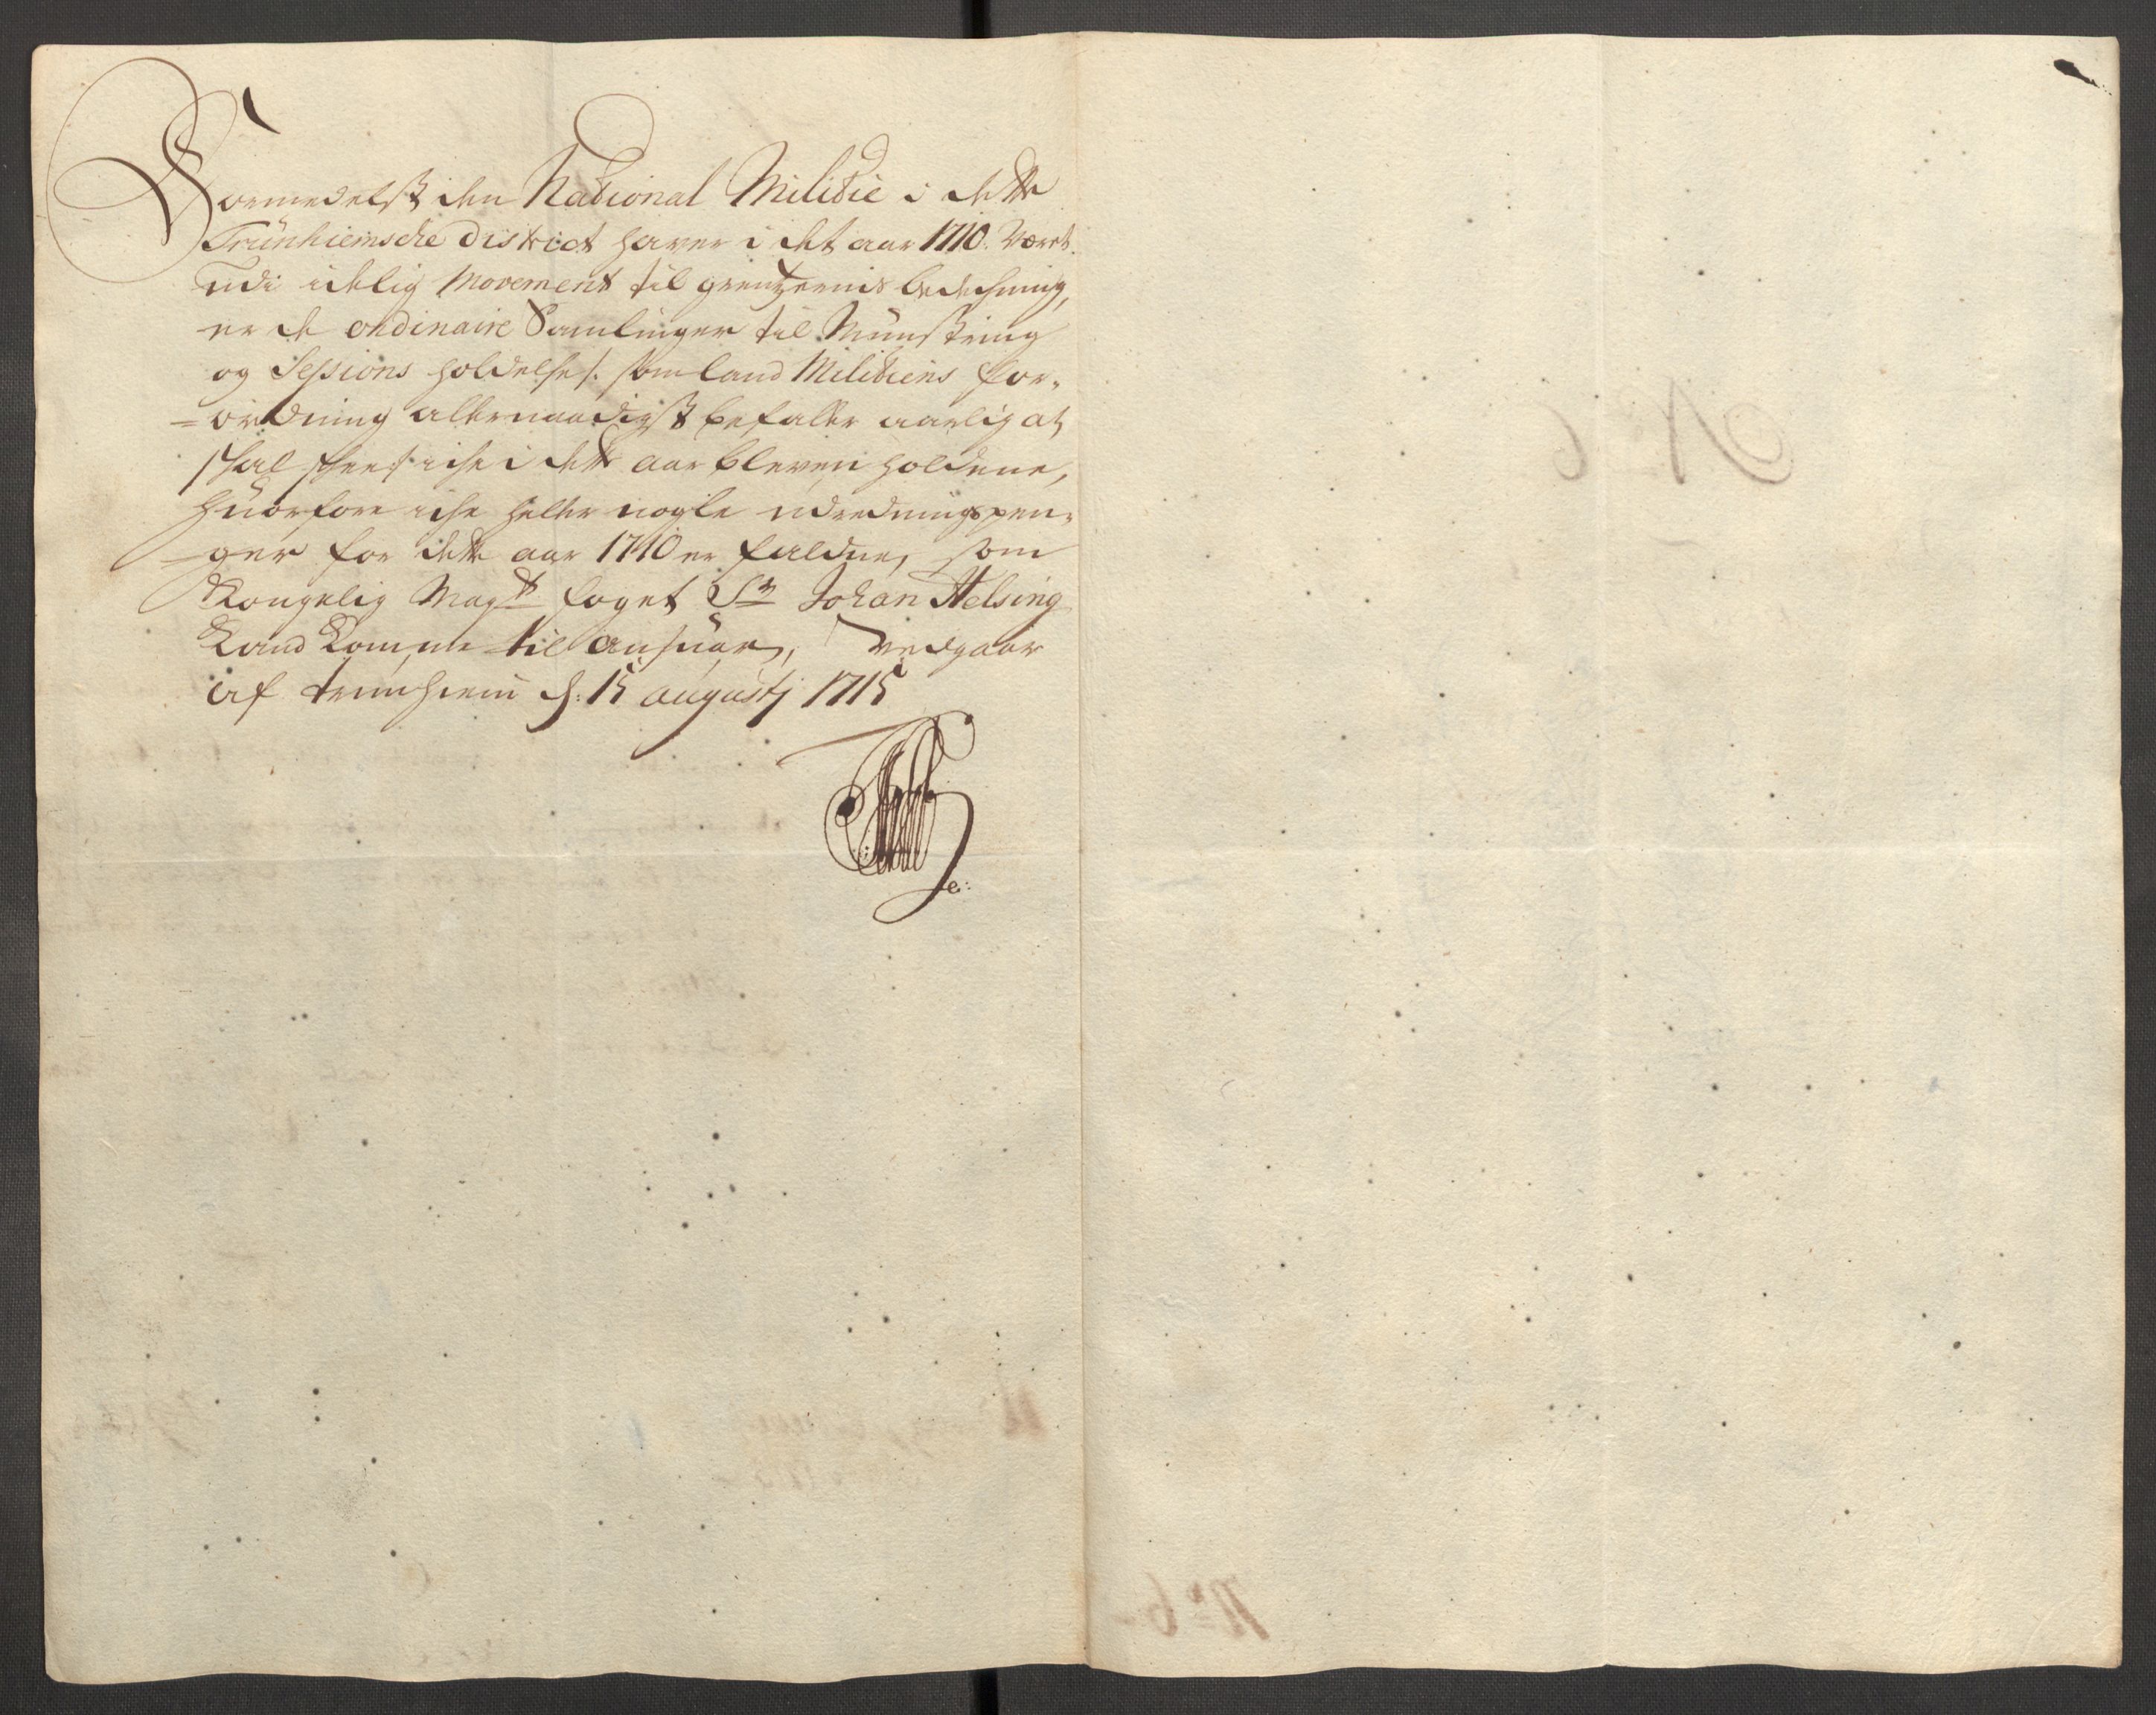 Formedelst den National Militie i dette
Trünhiemsche District haver i det aar 1710. Været
udi idelig Movement til grentzernis bedechning,
er de ordinaire Samlinger til Münstring
og Sessions holdelse /: som land Militiens for„
=ordning allernaadigst befaller aarlig at
schal schee :/ iche i dette aar bleven holdene,
hüorfore iche heller nogle udredningspen„
=ger for dette aar 1710 er faldne, som
Kongelig Mayts foget Sr Johan Helsing
Kand komme til ansüar, Vedgaar
af trunhiem d: 15 augustj 1715
No 6
No 6